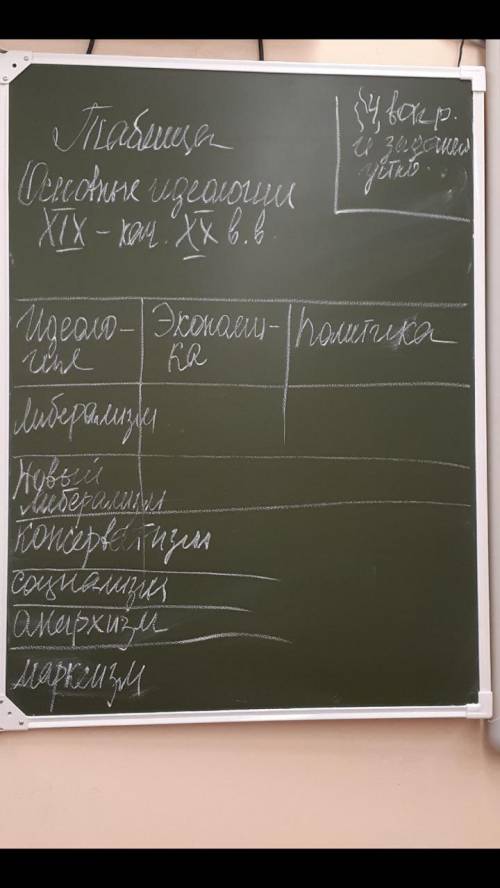 Таблица
Основные идеологии
XIX – нач. XX в.в.
§4, вопр.
и задания
устно.
Идеоло-
гия
Экономи-
ка
Политика
Либерализм
Новый
либерализм
Консерватизм
социализм
анархизм
марксизм